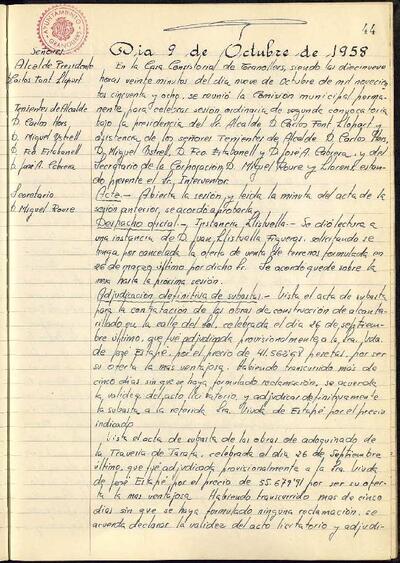 44
AYUNTAMIENTO
GRANOLLERS
Señores
Alcalde Presidente
Carlos Font Llopart
Tenientes de Alcalde
D. Carlos Hors
D. Miguel Botrell
D. Fco Estabanell
D. José A. Cabrera
Secretario
D. Miguel Roure
Dia 9 de Octubre de 1958
En la Casa Consistorial de Granollers, siendo las diecinueve
horas veinte minutos del dia nueve de Octubre de mil novecien
tos cincuenta y ocho, se reunió la Comisión municipal perma-
nente para celebrar sesión ordinaria de segunda convocatoria
bajo la presidencia del Sr. Alcalde D. Carlos Font Llopart y
asistencia de los señores Tenientes de Alcalde D. Carlos Hors,
D. Miguel Botrell, D. Fco Estabanell y D. José A. Cabrera, y del
Secretario de la Corporación D. Miguel Roure y Llorens, estan
do presente el Sr. Interventor.
Acta.- Abierta la sesión y leida la minuta del acta de la
sesión anterior, se acordo aprobarla.
Despacho oficial.- Instancia Llistuella.- Se dió lectura a
una instancia de D. Juan Llistuella Figueras, solicitando se
tenga por cancelada la oferta de venta de terrenos formulada en
26 de marzo último por dicho Sr. Se acordo quede sobre la
mesa hasta la próxima sesión.
Adjudicacion definitiva de subastas.- Vista el acta de subasta
para la contratacion de las obras de construcción de alcanta-
rillado en la calle del Sol, celebrada el dia 26 de Septiem-
bre último, que fué adjudicada provisionalmente a la Sra. Vda.
de José Estapé, por el precio de 41.563'68 pesetas, por ser
su oferta la mas ventajosa. Habiendo transcurrido más de
cinco dias sin que se haya formulado reclamación, se acuerda
la validez del acto licitatorio, y adjudicar definitivamente
la subasta a la referida Sra. Viuda de Estapé por el precio
indicado
Vista el acta de subasta de las obras de adoquinado de
la Travesia de Tarafa, celebrada el dia 26 de Septiembre
último, que fué adjudicada provisionalmente a la Sra. Viuda
de José Estapé por el precio de 55.679'91 por ser su oferta
la mas ventajosa. Habiendo transcurrido mas de cinco
dias sin que se haya formulado ninguna reclamación, se
acuerda declarar la validez del acto licitatorio y adjudi-